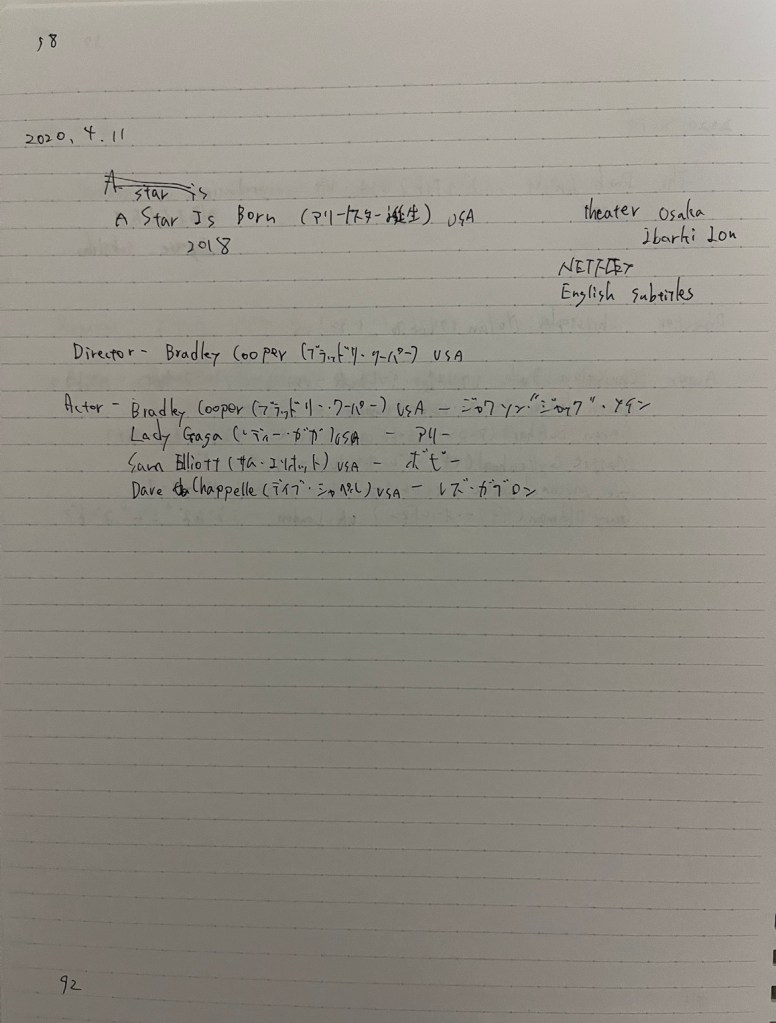 58
2020. 4. 11
A star is
A Star Is Born (アリー/スター誕生) USA
2018
theater Osaka
Ibarki Ion
NETFLIX
English subtitles
Director - Bradley Cooper (ブラッドリー・クーパー) USA
Actor - Bradley Cooper (ブラッドリー・クーパー) USA - ジャクソン・"ジャック"・メイン
Lady Gaga (レディー・ガガ) USA - アリー
Sam Elliott (サム・エリオット) USA - ボビー
Dave Chappelle (デイブ・シャペル) USA - レズ・ガブロン
92